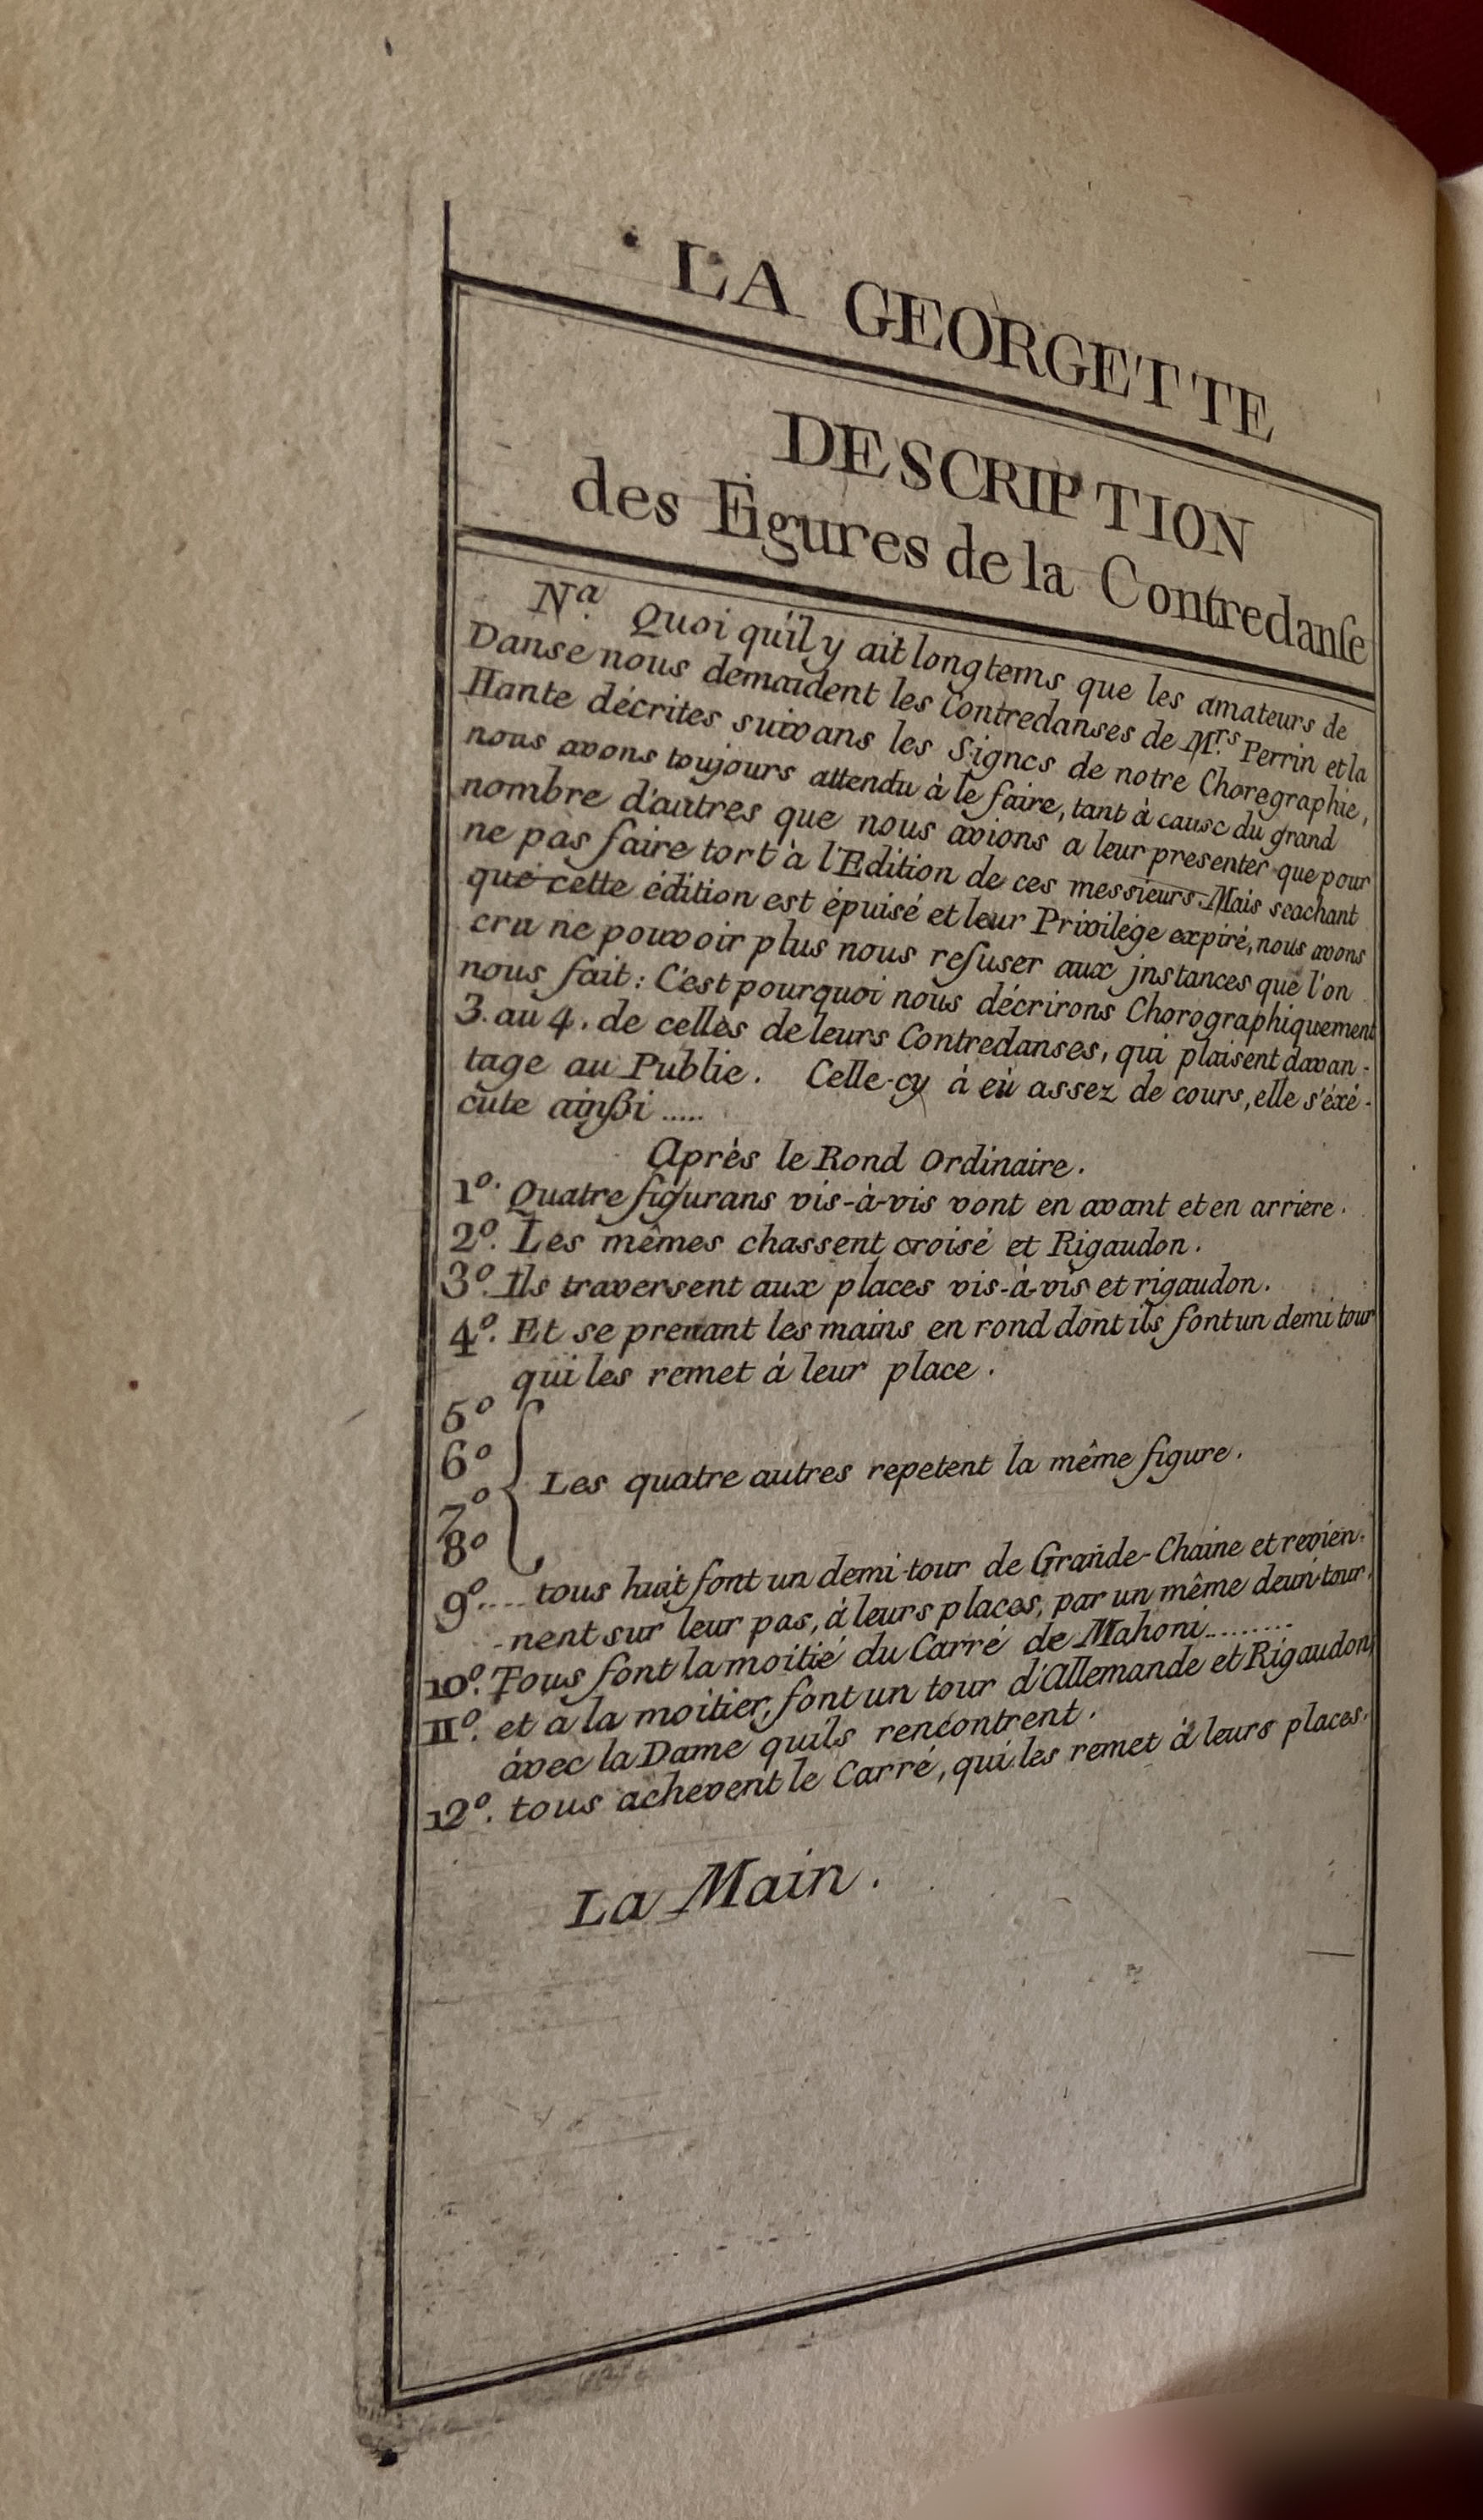 LA GEORGETTE
DESCRIPTION
des Figures de la Contredanse
Na. Quoi qu'il y ait longtems que les amateurs de
Danse nous demandent les Contredanses de Mrs. Perrin et la
Hante décrites suivans les Signes de notre Choregraphie,
nous avons toujours attendu à le faire, tant à cause du grand
nombre d'autres que nous avions a leur presenter que pour
ne pas faire tort à l'Edition de ces messieurs. Mais scachant
que cette édition est épuisé et leur Privilége expiré, nous avons
cru ne pouvoir plus nous refuser aux jnstances que l'on
nous fait: C'est pourquoi nous décrirons Chorographiquement
3. au 4. de celles de leurs Contredanses, qui plaisent davan-
tage au Public. Celle-cy à eù assez de cours, elle s'éxé-
cute ainßi .....
Après le Rond Ordinaire.
1º. Quatre figurans vis-à-vis vont en avant et en arriere.
2º. Les mêmes chassent croisé et Rigaudon.
3º. Ils traversent aux places vis-à-vis et rigaudon.
4º. Et se prenant les mains en rond dont ils font un demi tour
qui les remet à leur place.
5º
6º
Les quatre autres repetent la même figure.
7º
8º
9º.... tous huit font un demi-tour de Grande-Chaine et revien-
nent sur leur pas, à leurs places, par un même demi-tour.
10º. Tous font la moitié du Carré de Mahoni.........
11º. et a la moitier, font un tour d'Allemande et Rigaudon
avec la Dame quils rencontrent.
12º. tous achevent le Carré, qui les remet à leurs places.
La Main.